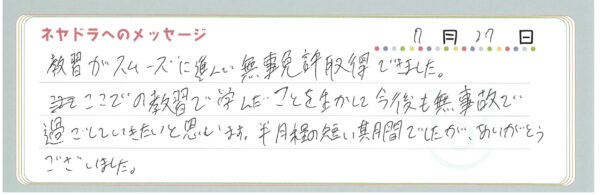 ネヤドラへのメッセージ
7月27日
教習がスムーズに進んで無事免許取得できました。
ここでの教習で学んだことを生かして今後も無事故で
過ごしていきたいと思います。半月程の短い期間でしたが、ありがとう
ございました。